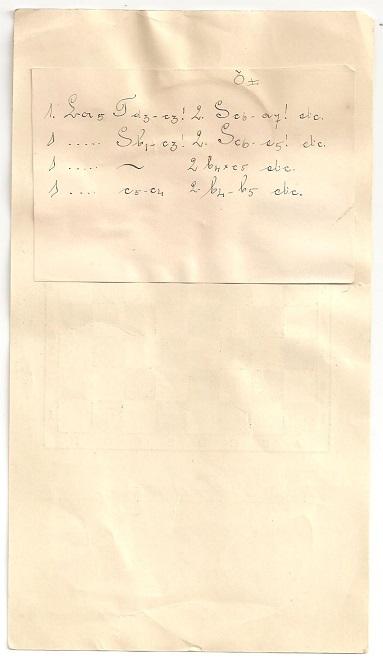 1. La5 Ta3-c3! 2. Sc6-a7! etc.
1 ..... Sb1-c3! 2. Sc6-e5! etc.
1 ..... ~ 2 b4×c5 etc.
1 .... c5-c4 2 b4-b5 etc.